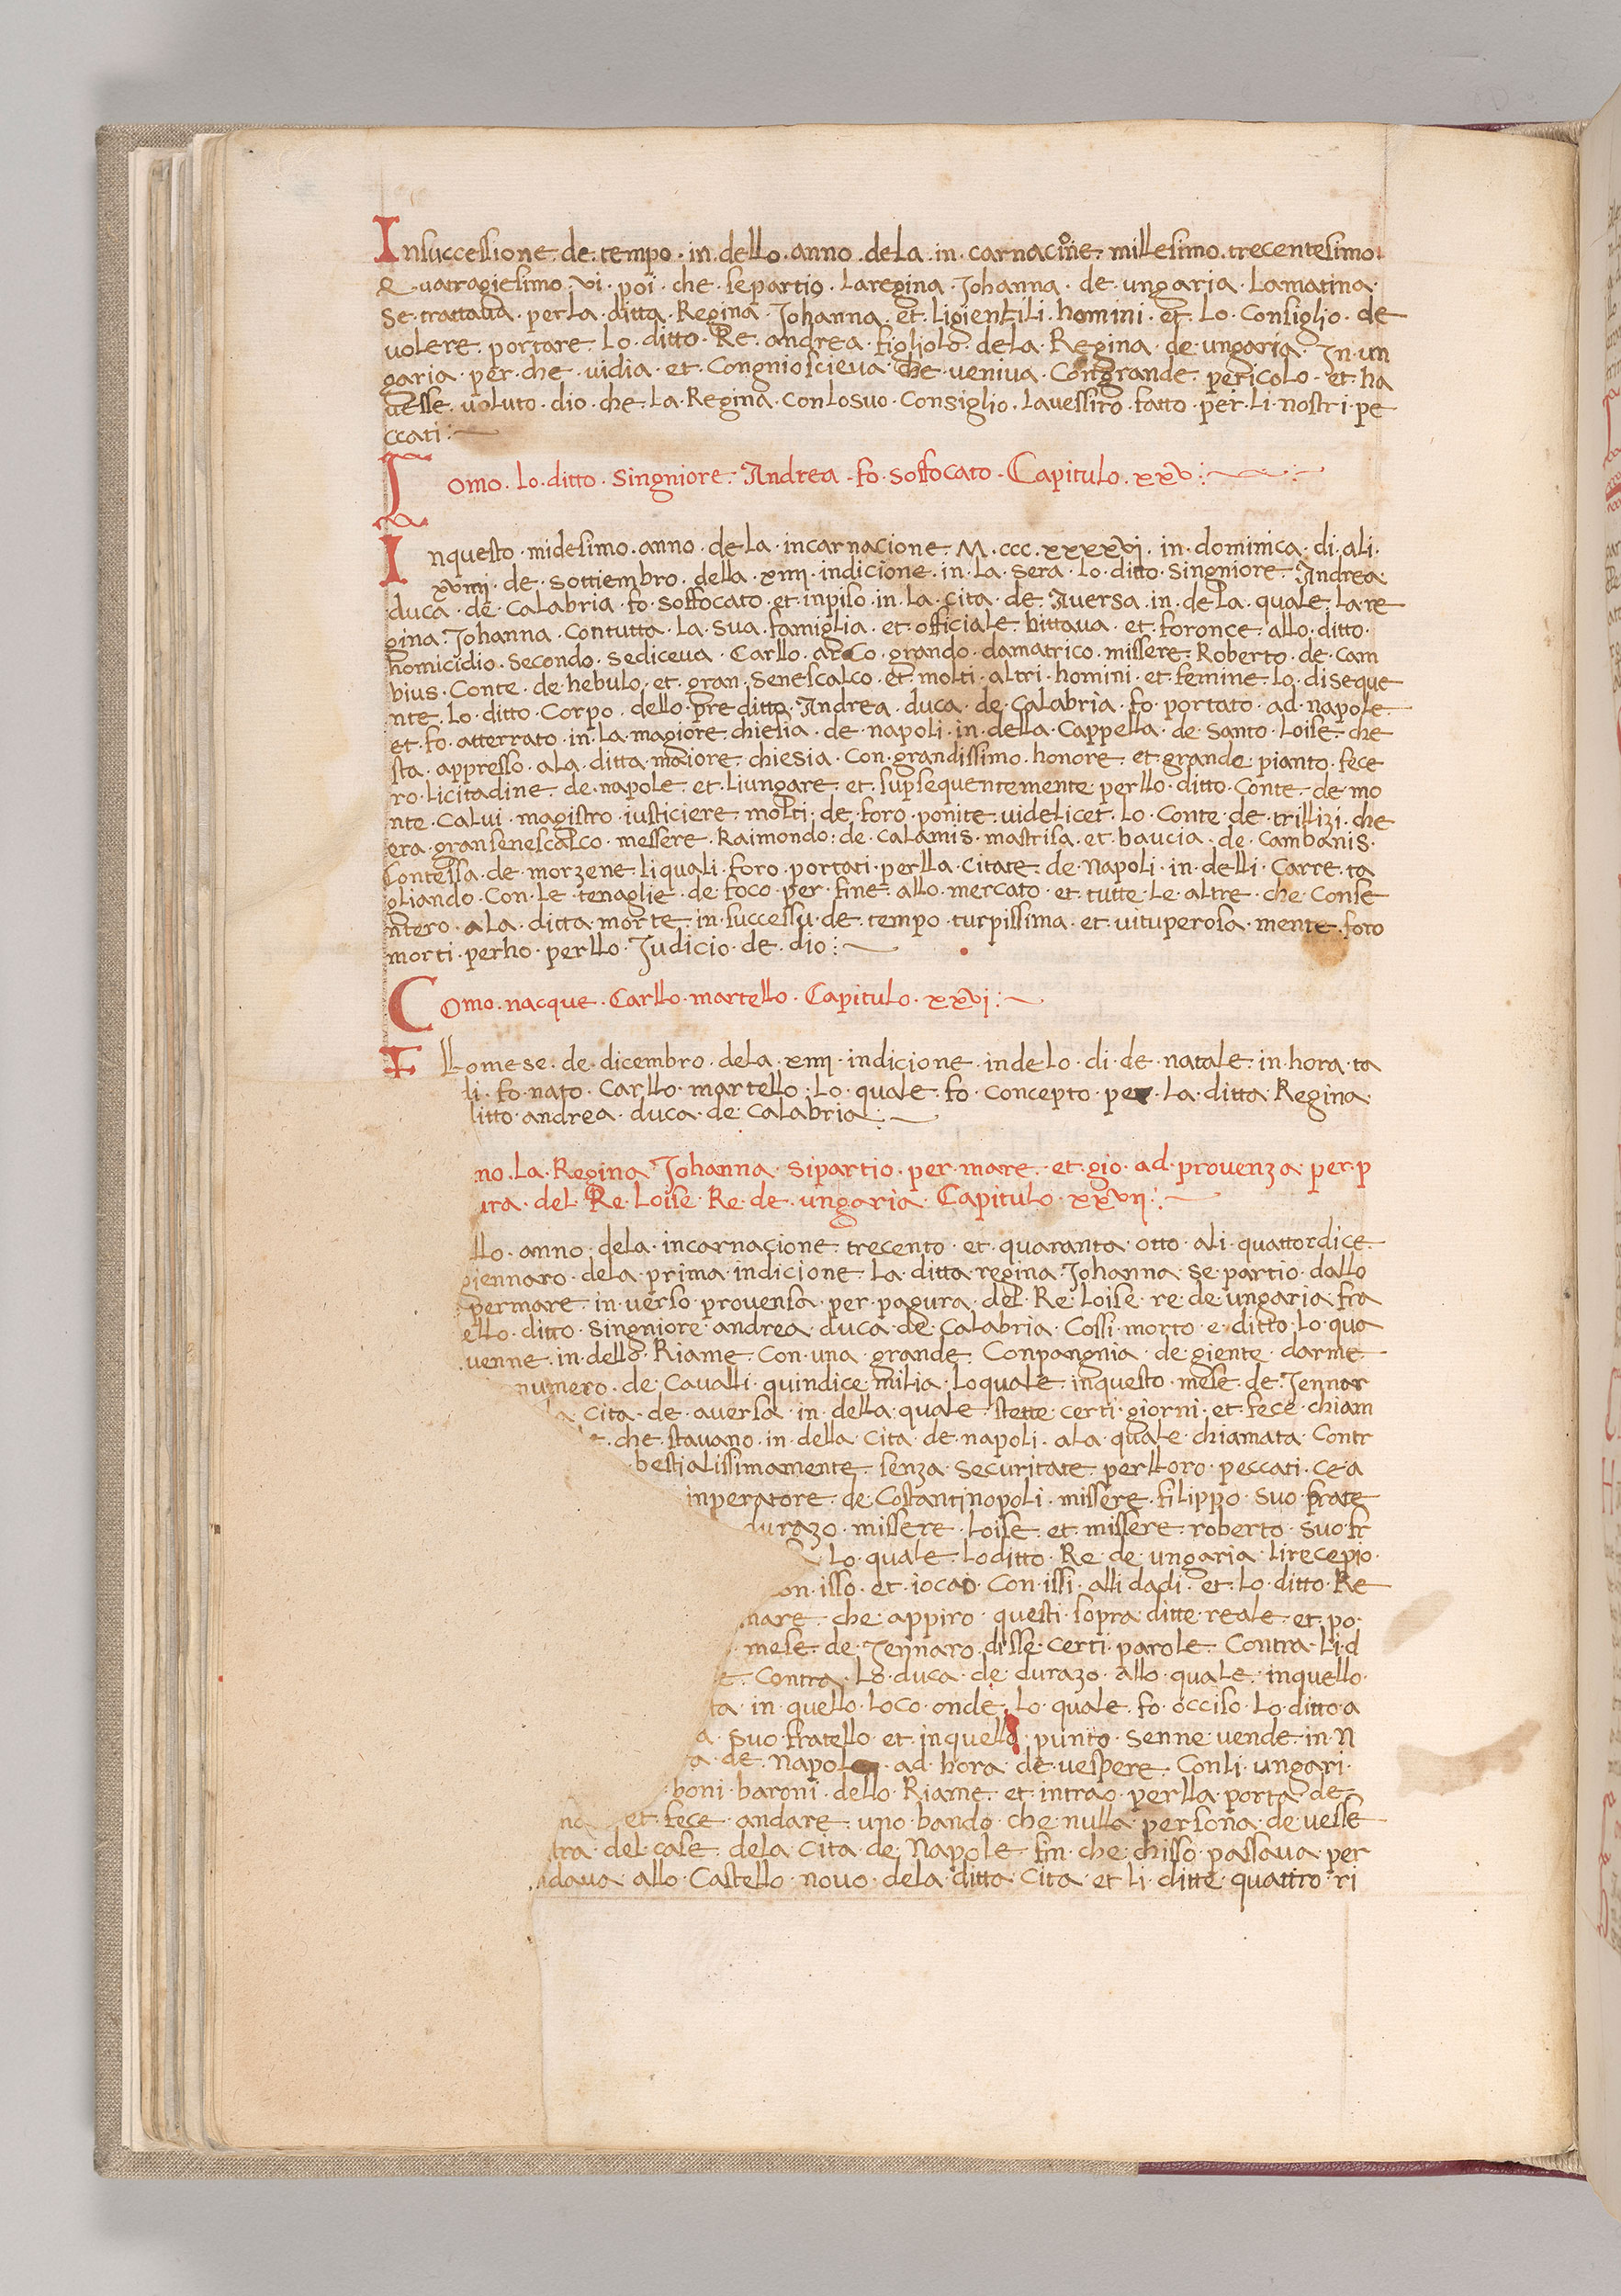 Insuccessione. de. tempo. in. dello. anno. dela. in. carnacione. millesimo. trecentesimo
Quatragiesimo. vi. poi. che. separtio. Laregina. Johanna. de. ungaria. Lamatina.
Se. trattaua. perla. ditta. Regina. Johanna. et. Ligientili. homini. et. Lo. Consiglio. de
uolere. portare. Lo. ditto. Re. andrea. figliolo. dela. Regina. de. ungaria. In. un
garia. per. che. uidia. et. Congnioscieua. che. ueniua. Congrande. pericolo. et. ha
uesse. uoluto. dio. che. La. Regina. Conlosuo. Consiglio. Lauessiro. fatto. per. Li. nostri. pe
ccati:
omo. Lo. ditto. Singniore. Andrea. fo. Soffocato. Capitulo. xxv:
Inquesto. midesimo. anno. dela. incarnacione. M. ccc. xxxxvi. in. dominica. di. ali.
xviiii. de. Sottiembro. della. xiiii. indicione. in. La. sera. Lo. ditto. Singniore. Andrea
duca. de. Calabria. fo. Soffocato. et. inpiso. in. La. cita. de. Auersa. in. dela. quale. La. re
gina. Johanna. Contutta. La. Sua. famiglia. et. officiale. bittaua. et. foronce. allo. ditto.
homicidio. Secondo. Sediceua. Carllo. arCo. grando. damatrico. missere. Roberto. de. Cam
bius. Conte. de. hebulo. et. gran. Senescalco. et. molti. altri. homini. et. femine. Lo. diseque
nte. Lo. ditto. Corpo. dello. preditto. Andrea. duca. de. Calabria. fo. portato. ad. napole.
et. fo. atterrato. in. La. magiore. chiesia. de. napoli. in. della. Cappella. de. Santo. Loise. che
sta. appresso. ala. ditta. maiore. chiesia. Con. grandissimo. honore. et. grande. pianto. fece
ro. Licitadine. de. napole. et. Liungare. et. supsequentemente. perllo. ditto. Conte. de. mo
nte. Calui. magistro. iusticiere. molti. de. foro. ponite. uidelicet. Lo. Conte. de. trillizi. che
era. gransenescalco. messere. Raimondo. de. Calamis. mastrisa. et. baucia. de. Cambanis.
Contessa. de. morzene. Liquali. foro. portati. perlla. Citate. de. Napoli. in. delli. Carre. ta
gliando. Con. Le. tenaglie. de. foco. per. fine. allo. mercato. et. tutte. Le. altre. che. Conse
ntero. aLa. ditta. morte. in. successu. de. tempo. turpissima. et. uituperosa. mente. foro
morti. perho. perllo. Judicio. de. dio:
Como. nacque. Carllo. martello. Capitulo. xxvi:
Ellomese. de. dicembro. dela. xiiii. indicione. indelo. di. de. natale. in. hora. ta
li. fo. nato. Carllo. martello. Lo. quale. fo. Concepto. per. La. ditta. Regina
litto. andrea. duca. de. Calabria:
no. La. Regina. Johanna. Sipartio. per. mare. et. gio. ad. prouenza. per. p
ura. del. Re. Loise. Re. de. ungaria. Capitulo. xxvii:
llo. anno. dela. incarnacione. trecento. et. quaranta. otto. ali. quattordice
giennaro. dela. prima. indicione. La. ditta. regina. Johanna. se. partio. dallo
permare. in. uerso. prouensa. per. pagura. del. Re. Loise. re. de. ungaria. fra
ello. ditto. Singniore. andrea. duca. de. Calabria. Cossi. morto. e. ditto. Lo. qua
uenne. in. dello. Riame. Con. una. grande. Conpangnia. de. giente. darme
numero. de. Caualli. quindice. milia. Loquale. inquesto. mese. de. Jennar
La. Cita. de. auersa. in. della. quale. stette. certi. giorni. et. fece. chiam
le. che. stauano. in. della. Cita. de. napoli. aLa. quale. chiamata. Contr
bestialissimamente. senza. Securitate. perlloro. peccati. ce. a
inperatore. de. Costantinopoli. missere. filippo. Suo. frate
durazo. missere. Loise. et. missere. roberto. Suo. fr
Lo. quale. Loditto. Re. de. ungaria. Lirecepio.
on. isso. et. iocao. Con. issi. alli. dadi. et. Lo. ditto. Re
nare. che. appiro. questi. sopra. ditte. reale. et. po.
mese. de. Jennaro. disse. certi. parole. Contra. Li. d
e. Contra. Lo. duca. de. durazo. allo. quale. inquello.
ta. in. quello. Loco. onde. Lo. quale. fo. occiso. Lo. ditto. a
a. Suo. fratello. et. inquello. punto. Senne. uende. in. N
ta. de. Napole. ad. hora. de. uespere. Conli. ungari.
boni. baroni. dello. Riame. et. intrao. perlla. porta. de
na. et. fece. andare. uno. bando. che. nulla. persona. deuesse
tra. del. case. dela. Cita. de. Napole. fin. che. chisso. passaua. per
ndaua. allo. Castello. nouo. dela. ditta. Cita. et. Li. ditte. quattro. ri